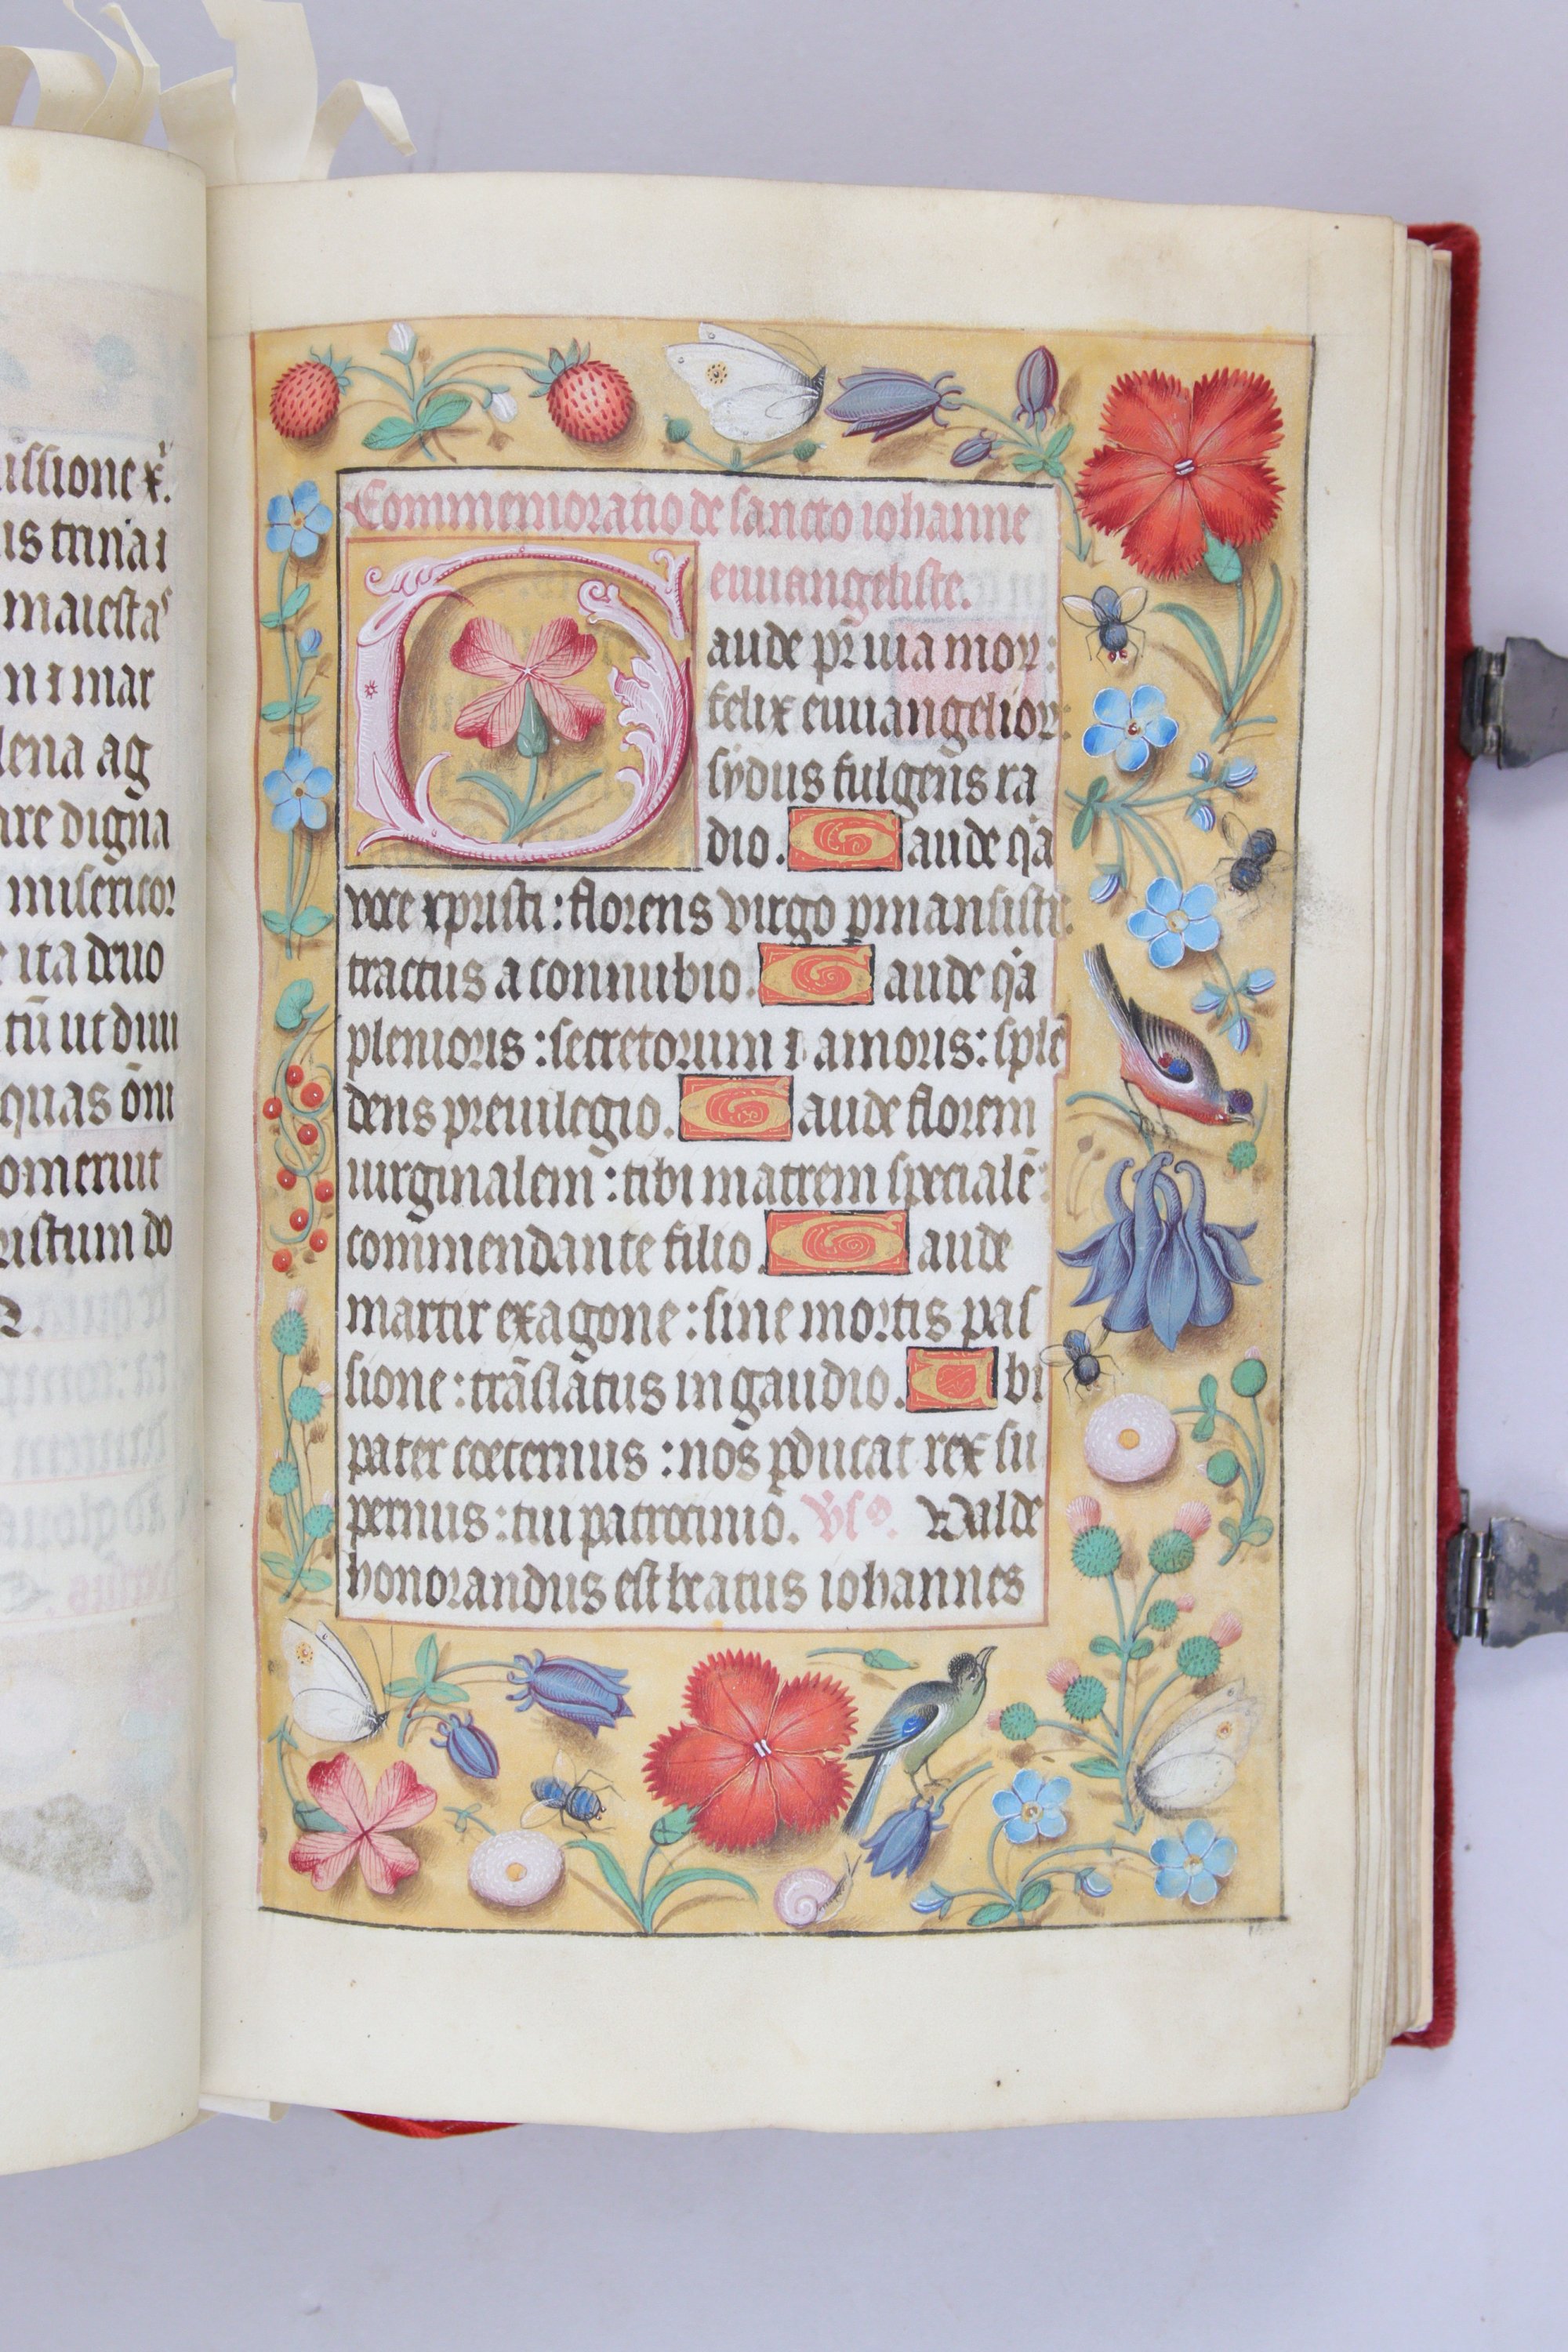 issione x̄.
us trina i
maiesta
n i mar
lena ag
are digna
misericor
ita deuo
tū ut diui
quas om̄i
omeruit
ristum do
Commemoratio de sancto iohanne
euuangeliste.
Gaude pr̄ uia mor:
felix euuangelior:
sydus fulgens ra
dio. Gaude q̄a
voce xp̄risti: florens virgo pmansisti:
tractus a connubio. Gaude q̄a
plenioris: secretorum i amoris: splē
dens preuilegio. Gaude florem
uirginalem: tibi matrem specialē:
commendante filio. Gaude
martir ex agone: sine mortis pas
sione: trāslatus in gaudio. Ubi
pater coeternus: nos p̱ducat rex su
pernus: tui patrocinio. V̄s̄. Valde
honorandus est beatus iohannes